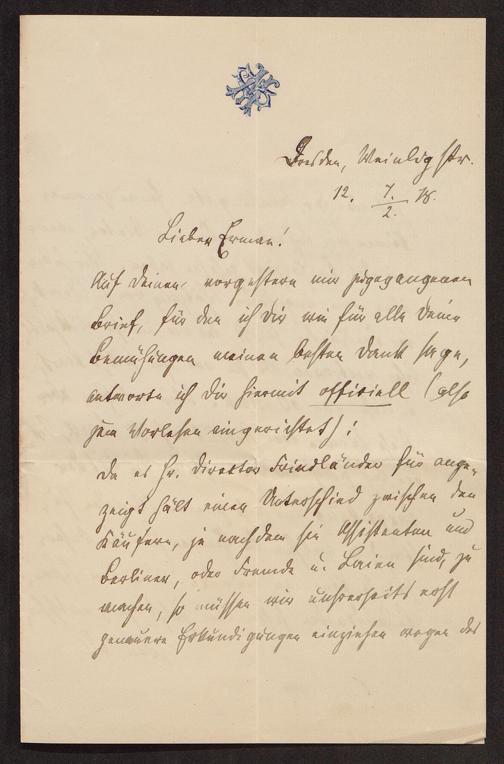 Dresden, Weinligstr.
12. 7./2. 78.
Lieber Erman!
Auf Deinen, vorgestern mir zugegangenen
Brief, für den ich Dir wie für alle Deine
Bemühungen meinen besten Dank sage,
antworte ich Dir hiermit officiell (also
zum Vorlesen eingerichtet):
Da es Hr. Direktor Friedländer für ange-
zeigt hält einen Unterschied zwischen den
Käufern, je nachdem sie Assistenten und
Berliner, oder Fremde u. Laien sind, zu
machen, so müssen wir unsrerseits erst
genauere Erkundigungen einziehen wegen des